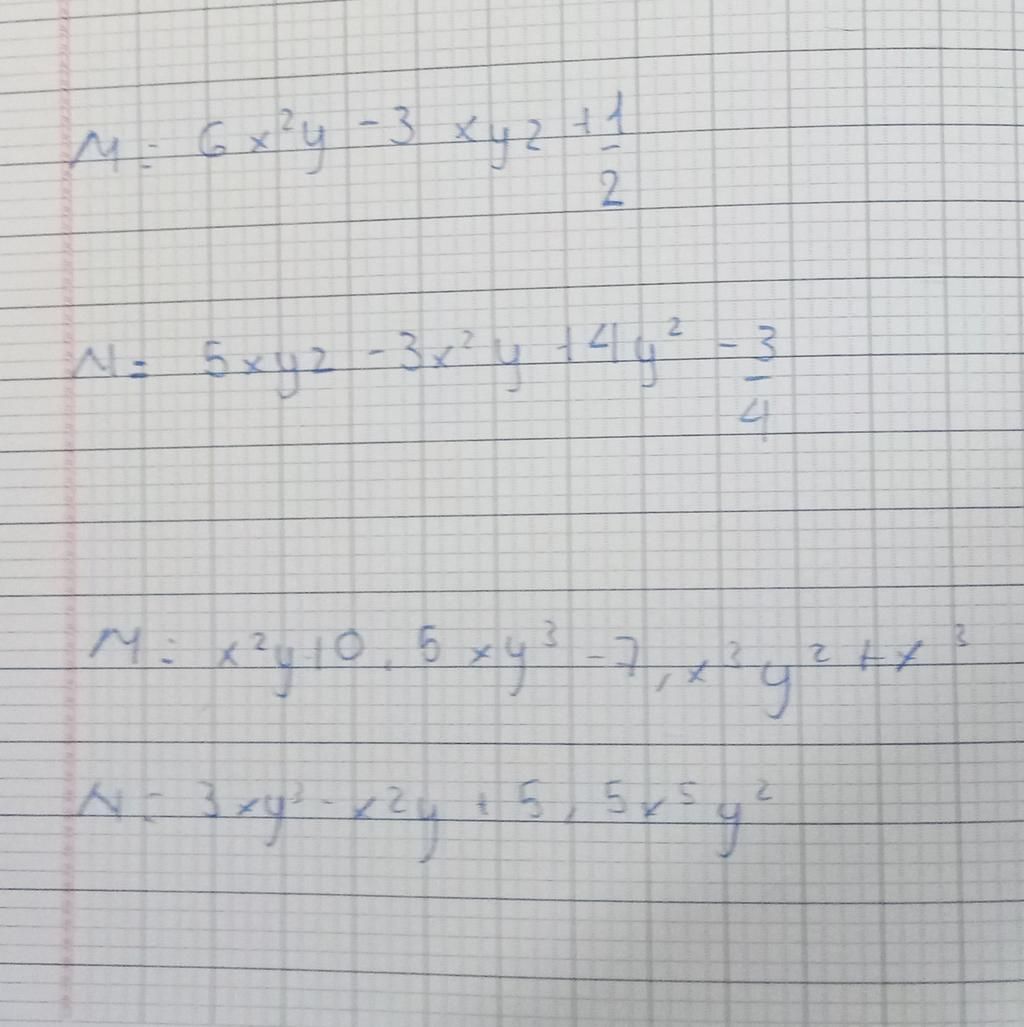 M = 6x²y - 3 xyz + 1/2
N = 5xyz - 3x²y + 4y² - 3/4
M = x²y + 0,5 xy³ - 7, x³y² + x³
N = 3xy³ - x²y + 5,5x⁵y²